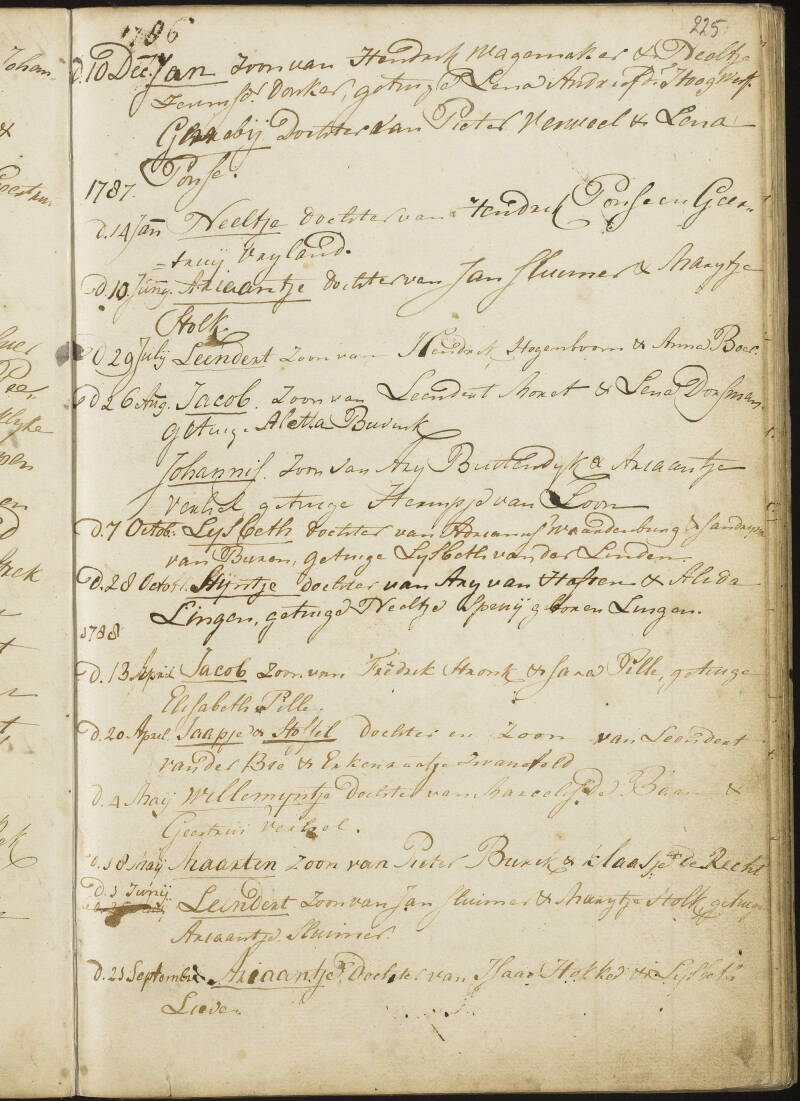 225
1786
d. 10 Dec. Jan zoon van Hendrik Wagemaker & Neeltje
Donker, getuyge Lena
dochter van Pieter Verwoel & Lena
Ponse.
1787.
d. 14 Jan Neeltje dochter van Hendrik Ponse en Geer=
=truij Vryland.
d. 10 Junij. Ariaantje dochter van Jan Sluimer & Marytje
Stolk
d 29 July Leendert zoon van Hendrik Hogenboom & Anna Boer.
d 26 Aug. Jacob. zoon van Leendert & Lena Dorsman.
getuige Aletta
Johannis. zoon van Ary Buitendyk & Ariaantje
getuige van Loon
d. 7 Octob. Lysbeth dochter van Adrianus Waardenburg &
van Buren, getuige Lysbeth van der Linden.
d. 28 Octob. Styntje dochter van Ary van & Alida
Lingen, getuige Neeltje Speuij geboren Lingen.
1788
d. 13 April Jacob zoon van Fredrik & Sara Pille, getuige
Elisabeth Pille.
d. 20. April Jaapje & Stoffel dochter en zoon van Leendert
van der Bie & Erkenraatje Zwanefeld
d. 4 Maij Willemyntje dochter van Marcelis de Baan &
Geertrui
d. 18 Maij Maarten zoon van Pieter Burck & Klaasje de Recht
d. 1 Junij
Leendert zoon van Jan Sluimer & Marytje Stolk, getuige
Ariaantje Sluimer.
d. 21 September Ariaantje dochter van Isaac & Lysbeth